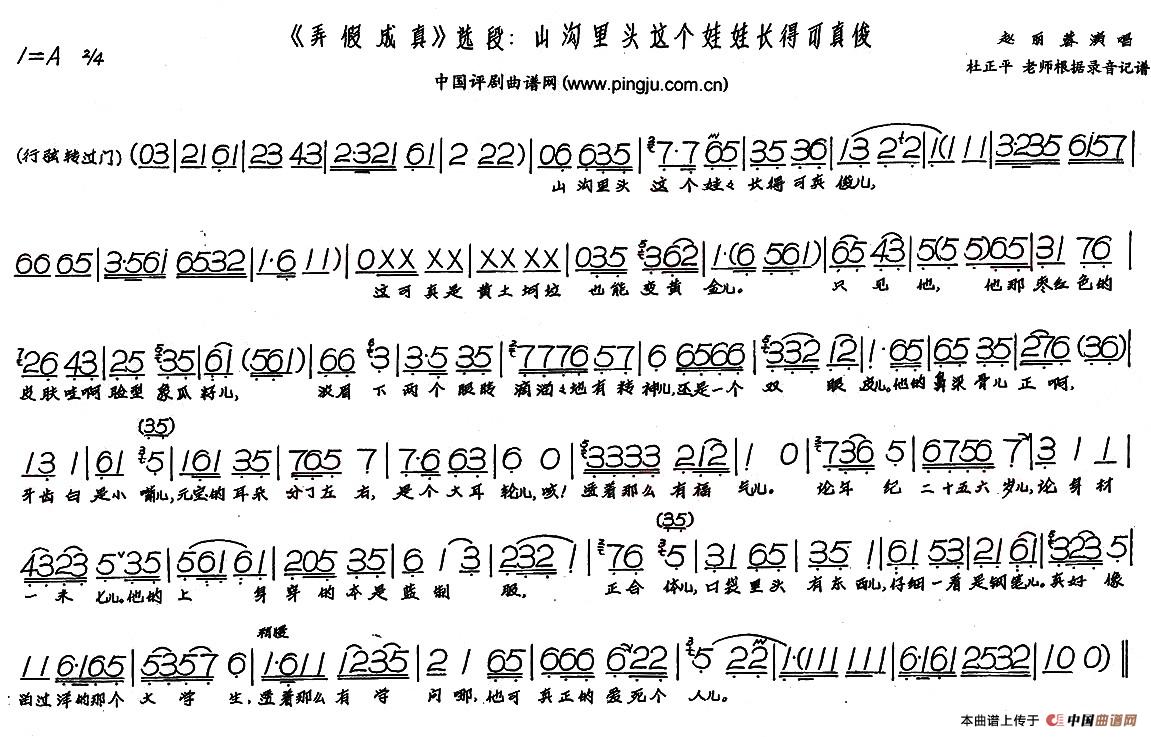 《弄假成真》选段：山沟里头这个娃娃长得可真俊
1=A 2/4
赵丽蓉演唱
中国评剧曲谱网(www.pingju.com.cn)
杜正平 老师根据录音记谱
(行弦转过门) (03|21 61|23 43|2·321 61|2 22)|06 635|7·7 65|35 36|13 22|1(111|3·235 6157|
山沟里头 这个娃々 长得可真 俊儿,
66 65|3·561 6532|1·6 11)|0XX XX|XX XX|035 362|1·(6 561)|65 43|5(5 5)65|31 76|
这可真是 黄土坷垃 也能变黄 金儿。 只见 他, 他那枣红色的
26 43|25 35|61 (561)|66 3|3·5 35|7776 57|6 6566|332 12|1·65|65 35|276 (36)|
皮肤哇啊 脸型象瓜 籽儿, 浓眉 下 两个眼睛 滴溜々地有 转神儿,还是一个 双 眼 皮儿。他的 鼻梁骨儿 正啊,
(35)
13 1|61 5|161 35|765 7|7·6 63|6 0|3333 212|1 0|736 5|6756 7|3 11|
牙齿白 是小嘴儿,元宝的耳朵 分了左右, 是个大耳 轮儿,咳! 透着那么有福 气儿。 论年纪 二十五六 岁儿,论身材
(35)
4323 535|561 61|205 35|6 13|232 1|76 5|31 65|35 1|61 53|21 61|323 5|
一米 七儿。他的 上 身 穿的本是 蓝制 服。 正合 体儿,口袋里头 有东西儿,仔细一看 是钢笔儿。真好 像
稍慢
11 6·165|53557 6|1·611 1235|2 165|666 622|5 22|1·(111 111|6·161 2532|100)‖
泊过洋的那个 大学生,透着那么有学 问哪,他可真正的爱死个 人儿。
本曲谱上传于 中国曲谱网